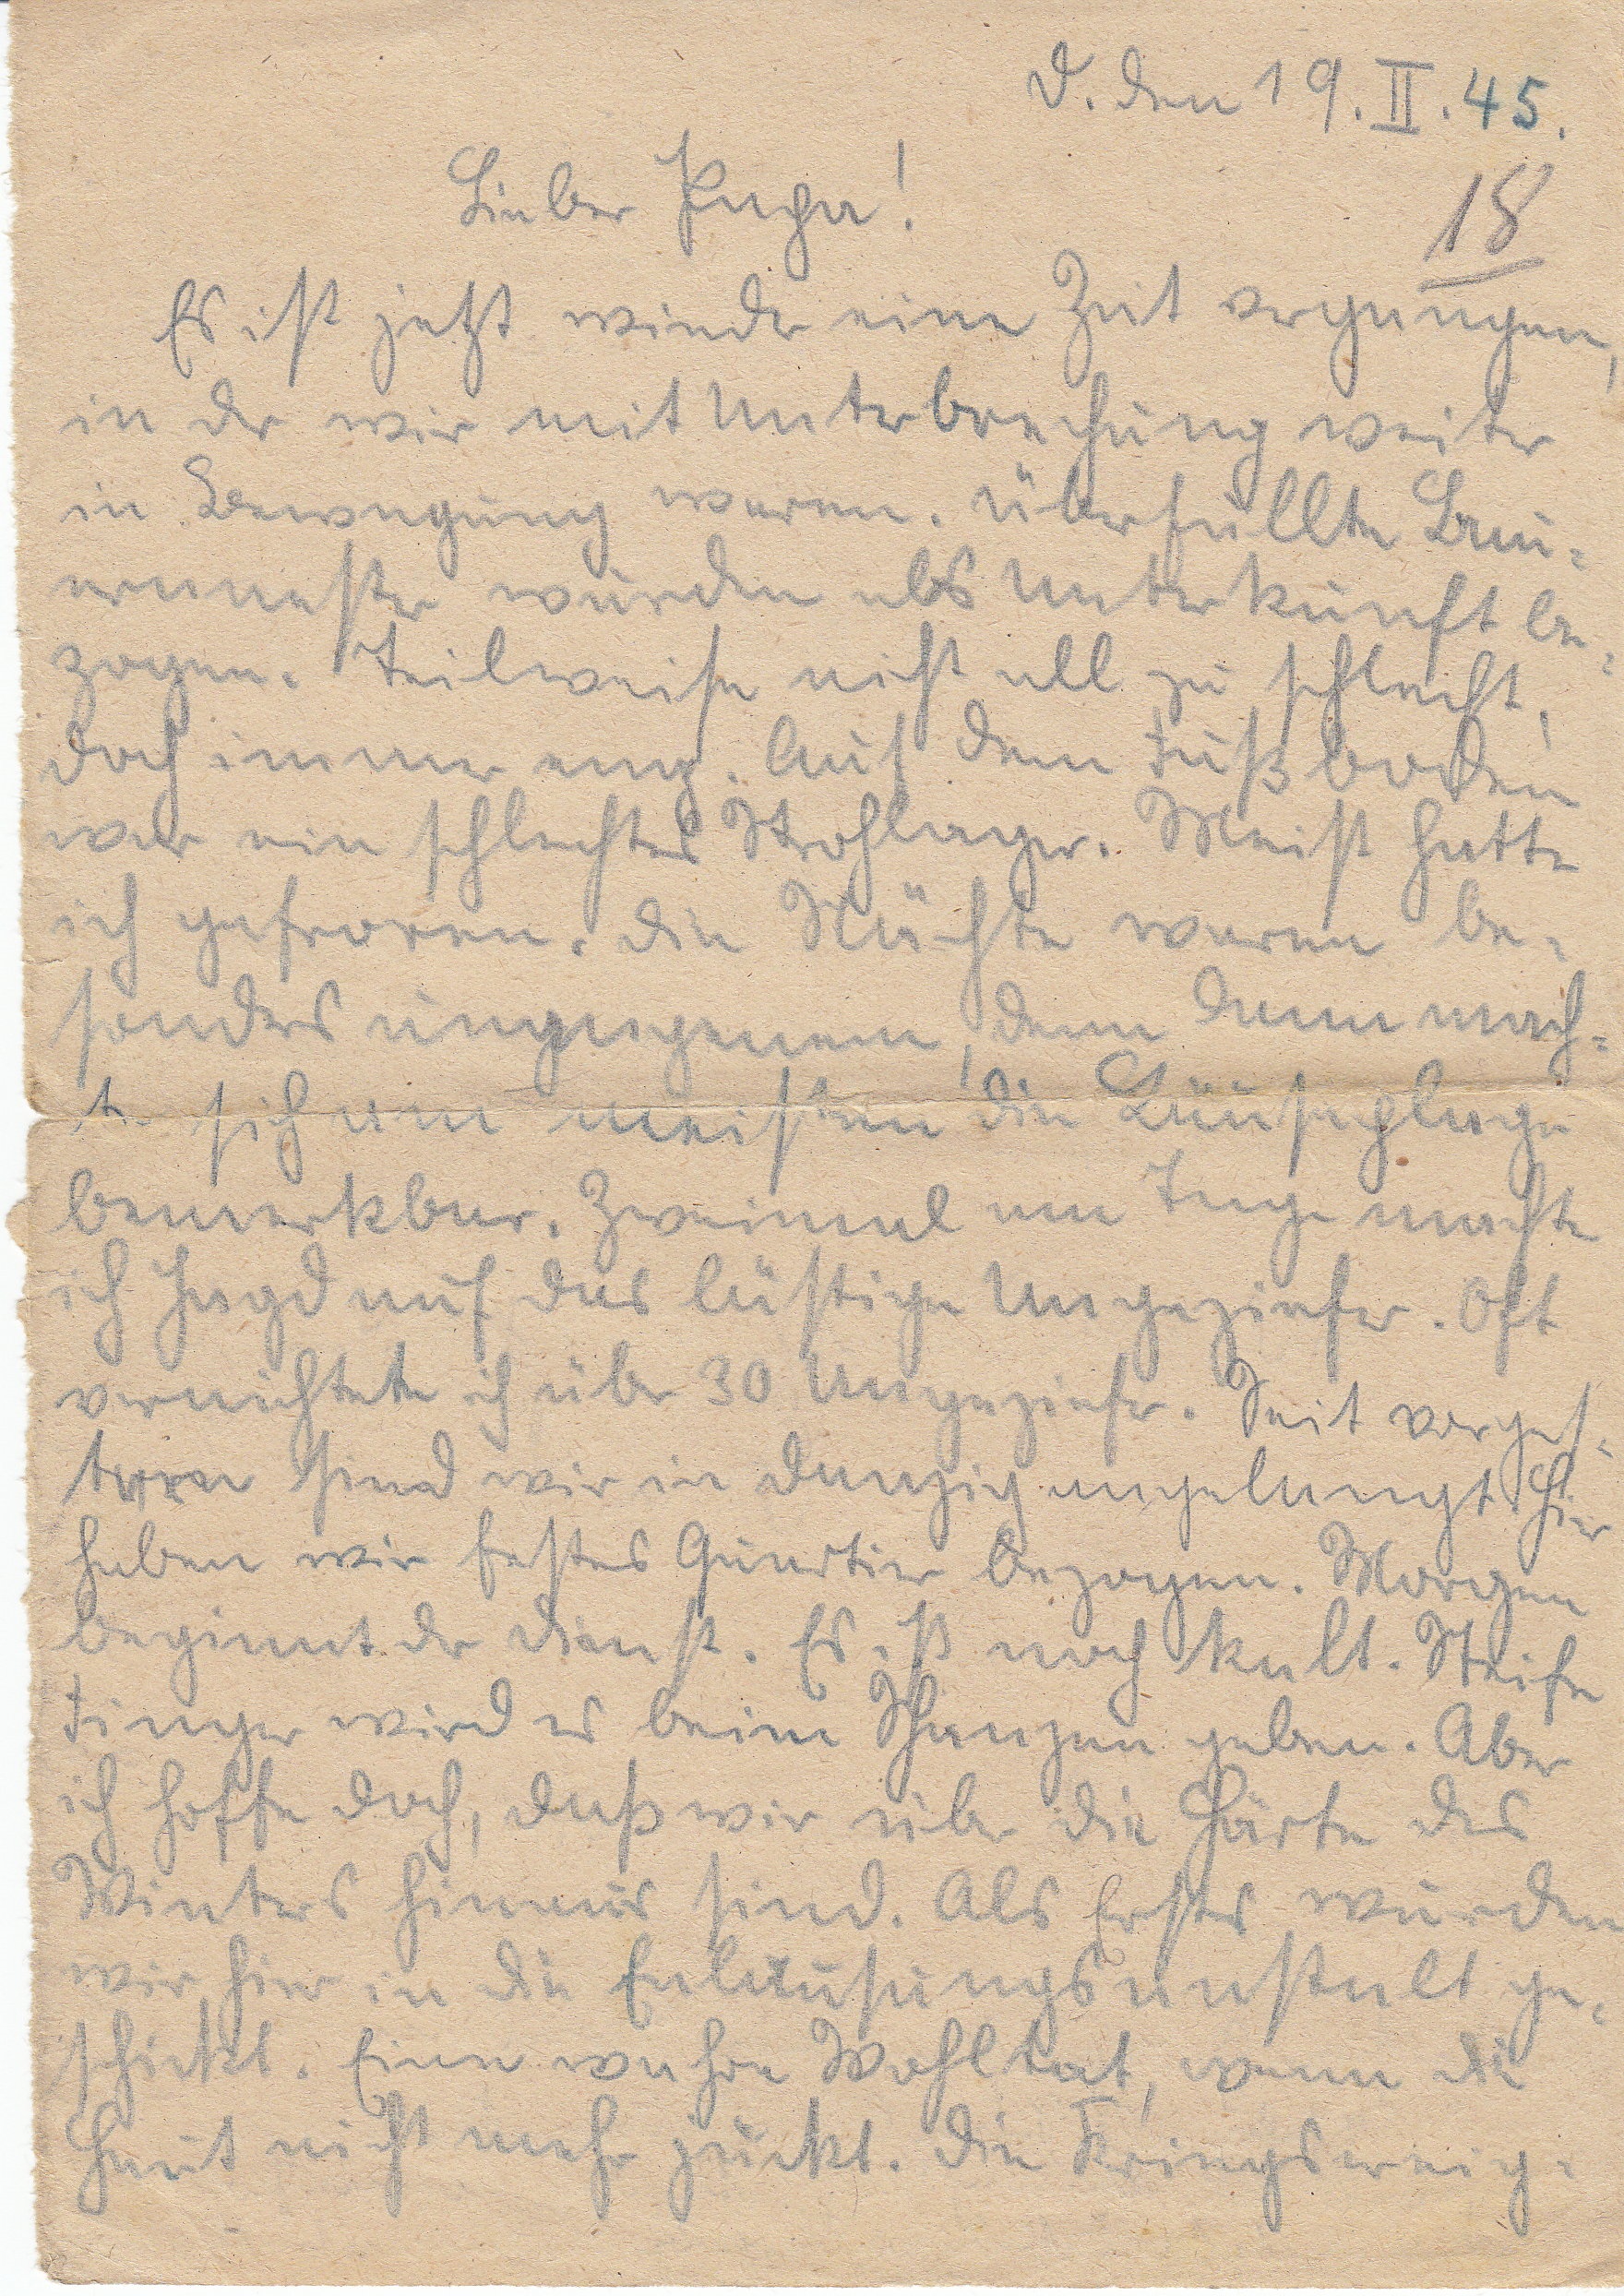 D. den 19.II.45.
18
Lieber Papa!
Es ist jetzt wieder eine Zeit vergangen,
in der wir mit Unterbrechung weiter
in Bewegung waren. Überfüllte Bau-
ernnester wurden als Unterkunft be-
zogen. Teilweise nicht all zu schlecht,
doch immer eng. Auf dem Fußboden
war ein schlechtes Strohlager. Meist hatte
ich gefroren. Die Nächte waren be-
sonders unangenem, denn dann mach-
te sich am meisten die Läuseplage
bemerkbar. Zweimal am Tage machte
ich Jagd auf das lästige Ungeziefer. Oft
vernichtete ich über 30 Ungeziefer. Seit vorges-
tern sind wir in Danzig angelangt. Hier
haben wir festes Quartier bezogen. Morgen
beginnt der Dienst. Es ist noch kalt. Steife
Finger wird es beim Schanzen geben. Aber
ich hoffe doch, daß wir über die Härte des
Winters hinaus sind. Als Erstes wurden
wir hier in die Enlausungsanstalt ge-
schickt. Eine wahre Wohltat, wenn die
Haut nicht mehr juckt. Die Kriegsereig-